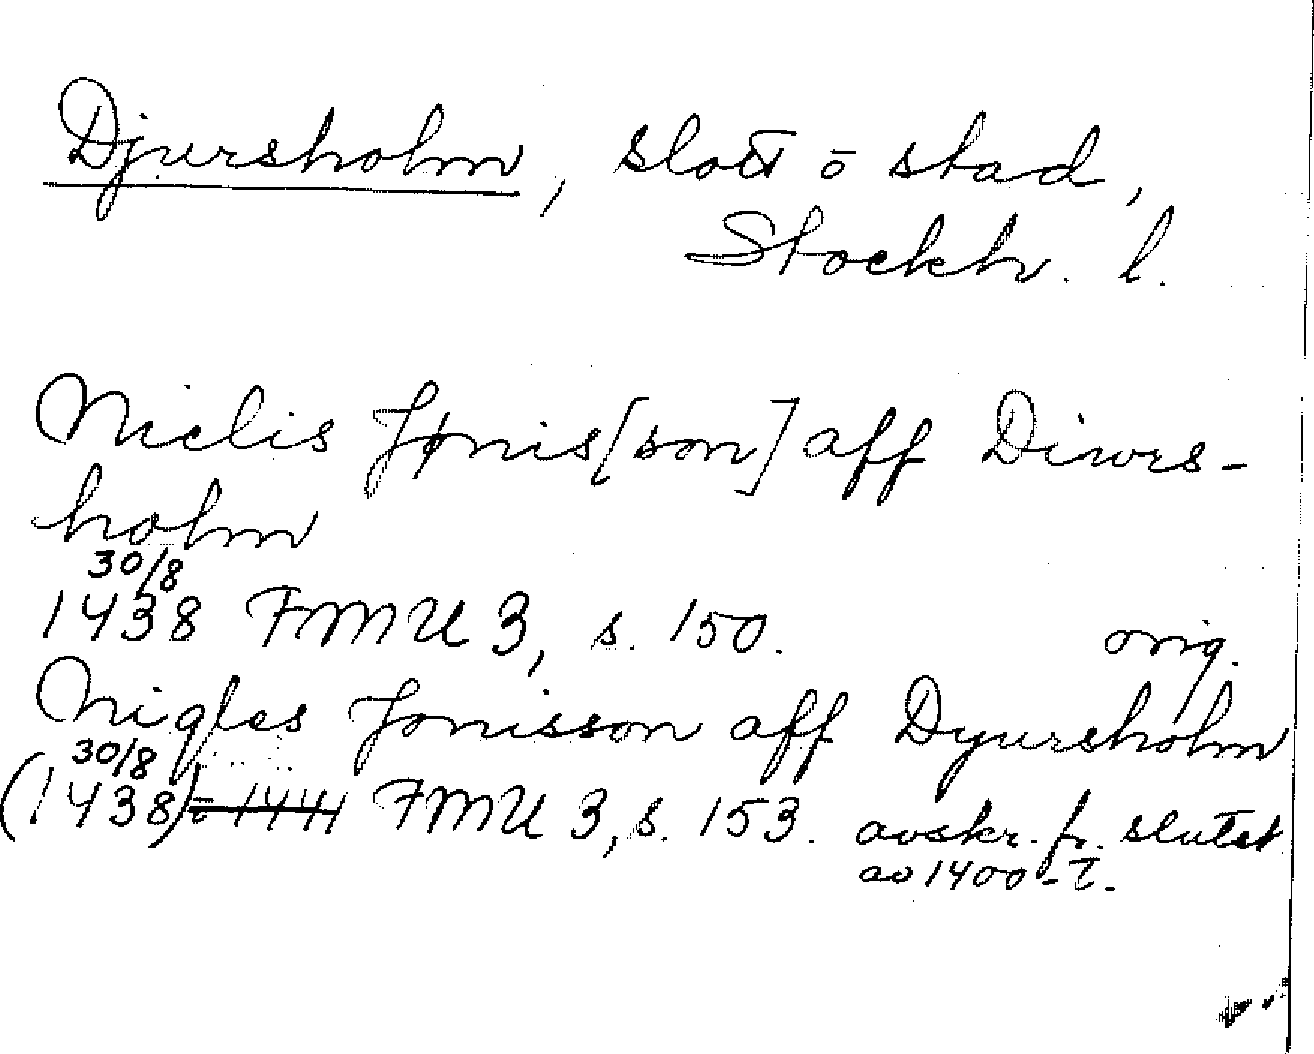 Djursholm, slott o stad,
Stockh. l.
Nielis Jønis[son] aff Diwrs-
holm
30/8
1438 FMU 3, s. 150. orig.
Nigles Jonisson aff Dyursholm
30/8
(1438) o 1441 FMU 3, s. 153. avskr. fr. slutet
av 1400-t.